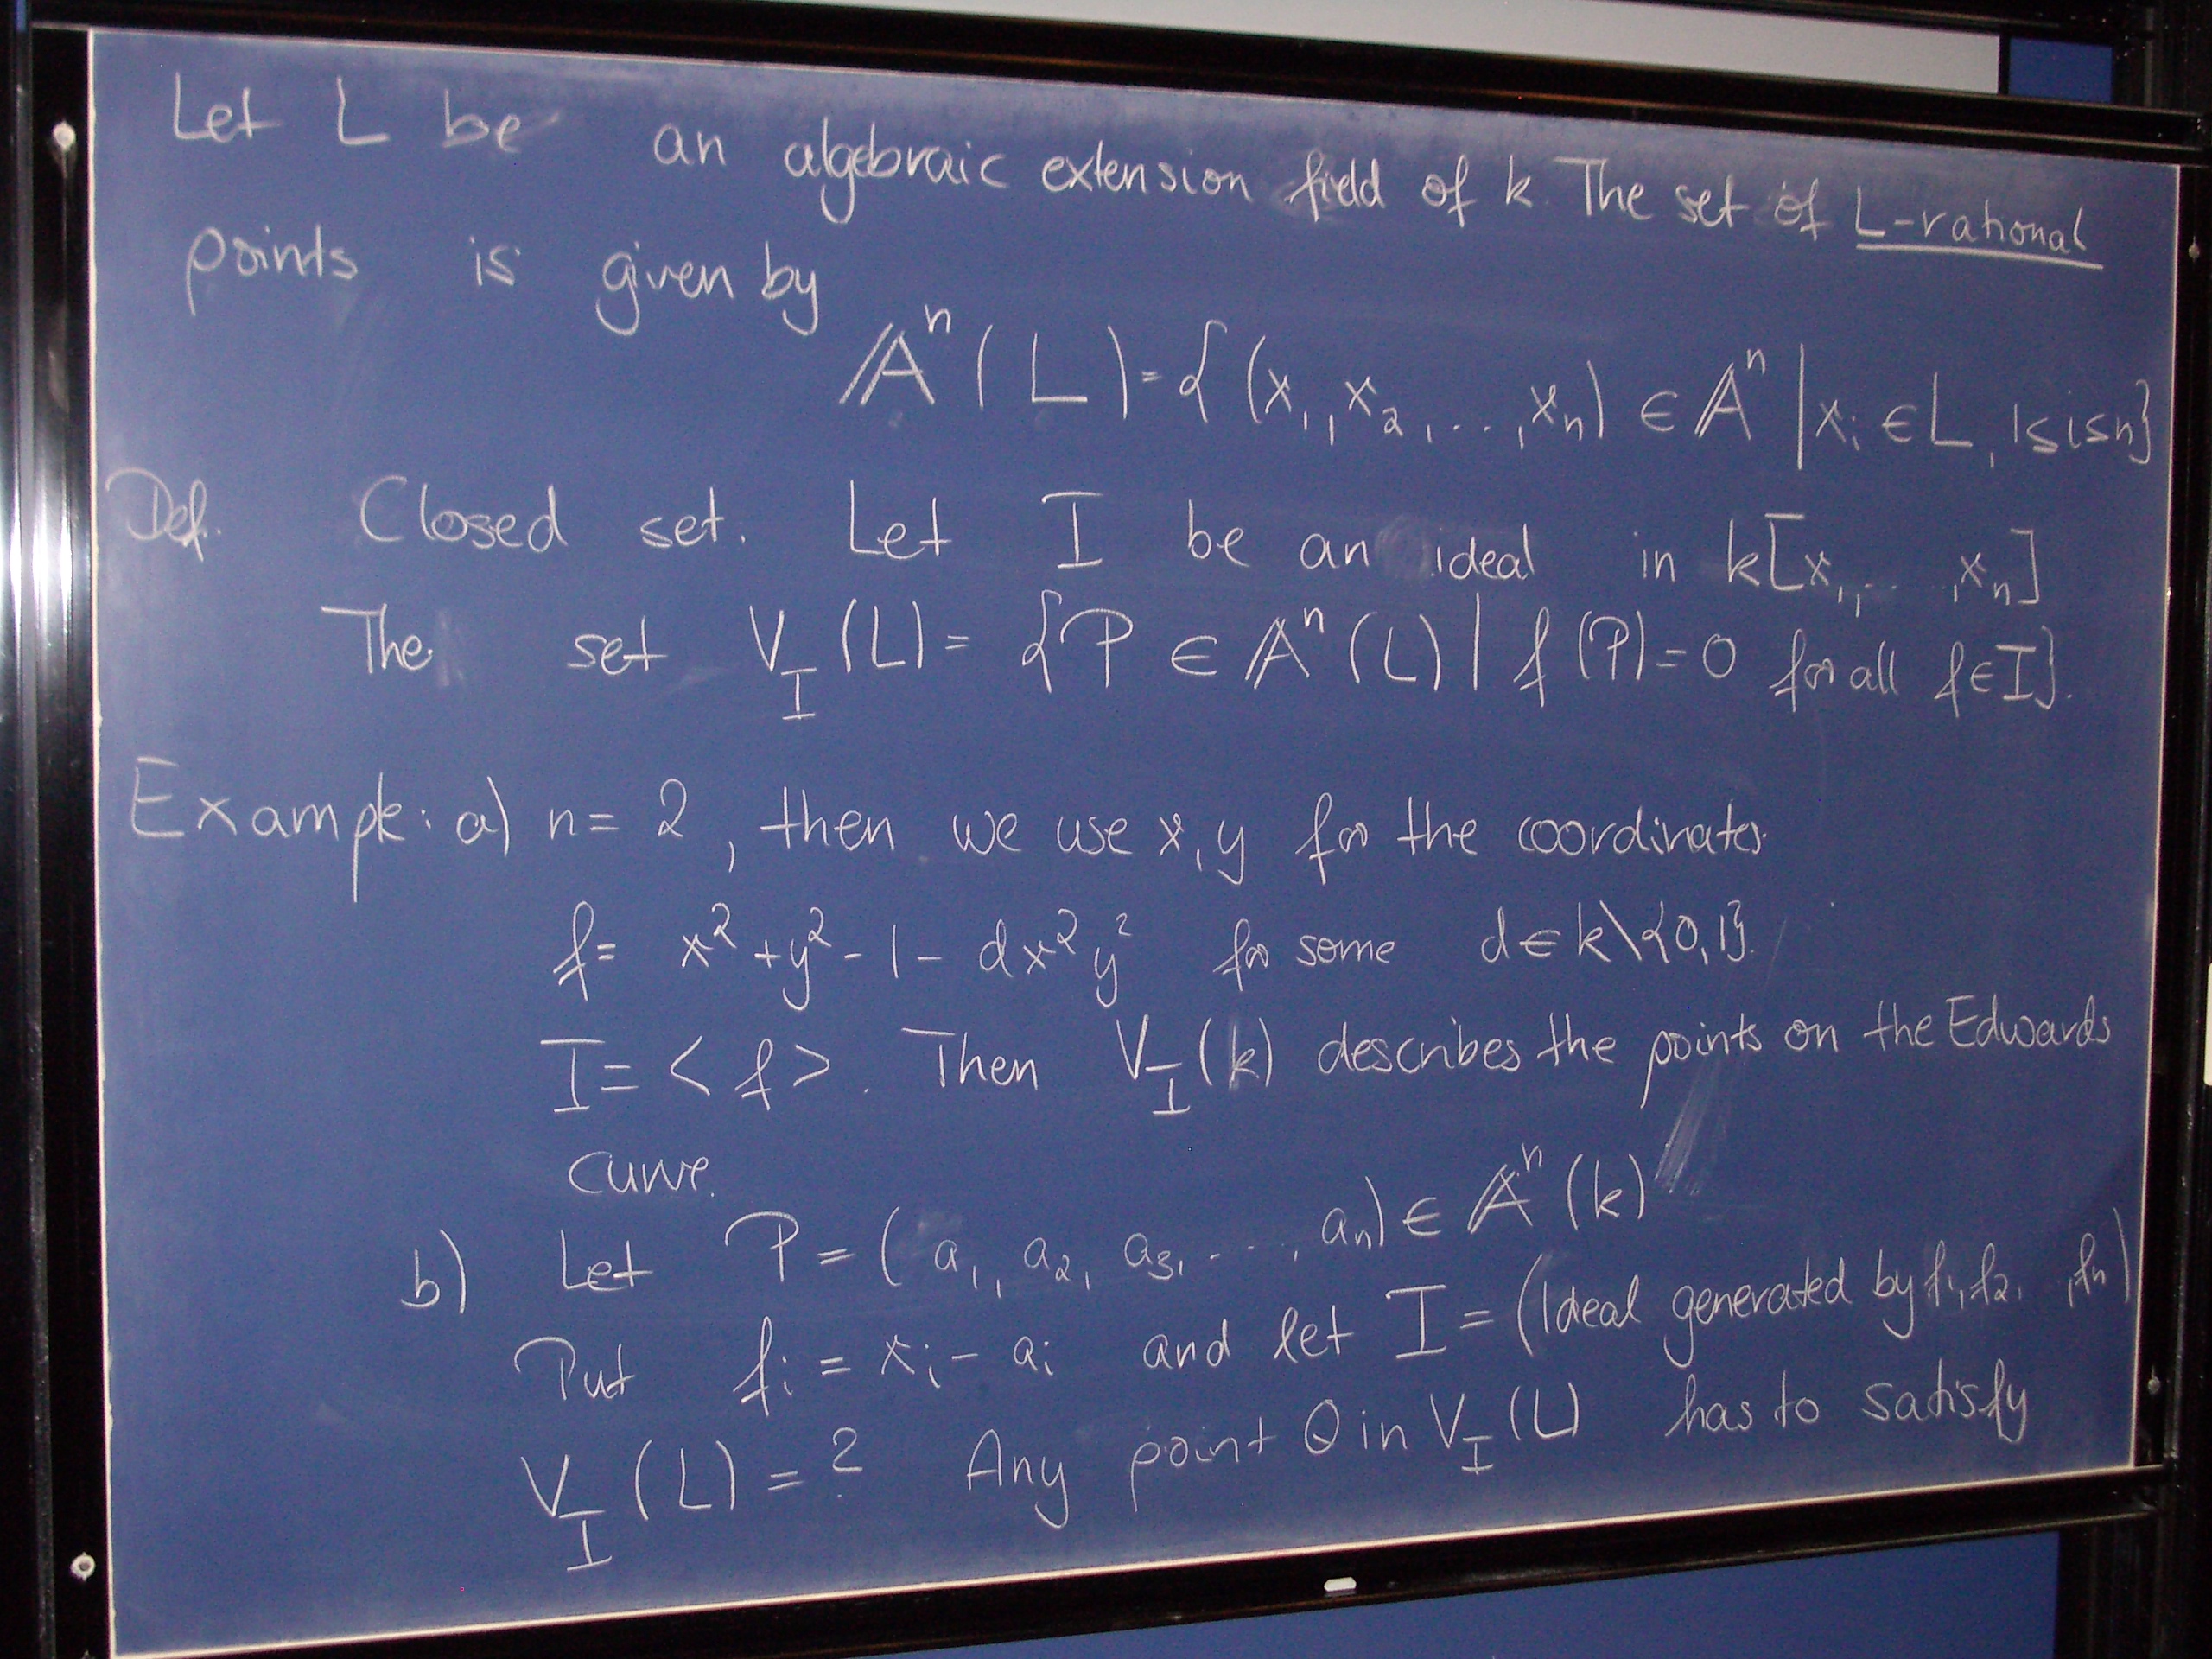 Let L be an algebraic extension field of k. The set of L-rational
points is given by
𝔸ⁿ(L)={(x₁,x₂,...,xₙ) ∈ 𝔸ⁿ | xᵢ ∈ L, 1≤i≤n}
Def. Closed set. Let I be an ideal in k[x₁,...,xₙ]
The set V_I(L) = {P ∈ 𝔸ⁿ(L) | f(P)=0 for all f∈I}.
Example: a) n=2, then we use x,y for the coordinates.
f= x²+y²-1-dx²y² for some d∈k\{0,1}.
I=<f>. Then V_I(k) describes the points on the Edwards
curve.
b) Let P=(a₁,a₂,a₃,...,aₙ) ∈ 𝔸ⁿ(k)
Put fᵢ = xᵢ-aᵢ and let I=(Ideal generated by f₁,f₂, ,fₙ)
V_I(L)=? Any point Q in V_I(L) has to satisfy